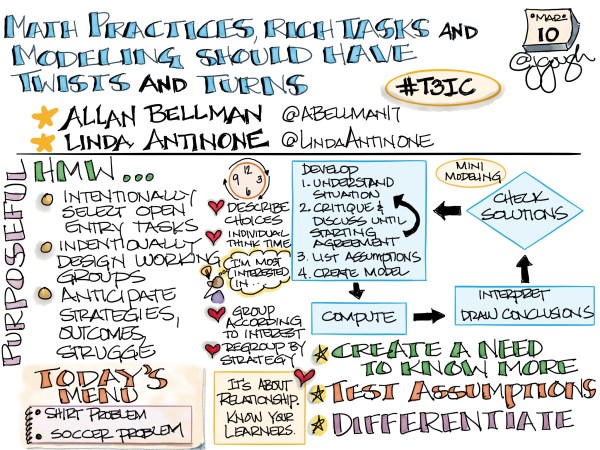 MATH PRACTICES, RICH TASKS AND
MODELING SHOULD HAVE
TWISTS AND TURNS
MAR
10
@jgough
#T3IC
ALLAN BELLMAN @ABELLMAN17
LINDA ANTINONE @LINDAANTINONE
PURPOSEFUL
HMW...
INTENTIONALLY
SELECT OPEN
ENTRY TASKS
INDENTIONALLY
DESIGN WORKING
GROUPS
ANTICIPATE
STRATEGIES,
OUTCOMES,
STRUGGE
12
9 3
6
DESCRIBE
CHOICES
INDIVIDUAL
THINK TIME
I'M MOST
INTERESTED
IN...
GROUP
ACCORDING
TO INTEREST
REGROUP BY
STRATEGY
DEVELOP
1. UNDERSTAND
SITUATION
2. CRITIQUE &
DISCUSS UNTIL
STARTING
AGREEMENT
3. LIST ASSUMPTIONS
4. CREATE MODEL
MINI
MODELING
CHECK
SOLUTIONS
COMPUTE
INTERPRET
DRAW CONCLUSIONS
TODAY'S
MENU
SHIRT PROBLEM
SOCCER PROBLEM
IT'S ABOUT
RELATIONSHIP.
KNOW YOUR
LEARNERS.
CREATE A NEED
TO KNOW MORE
TEST ASSUMPTIONS
DIFFERENTIATE